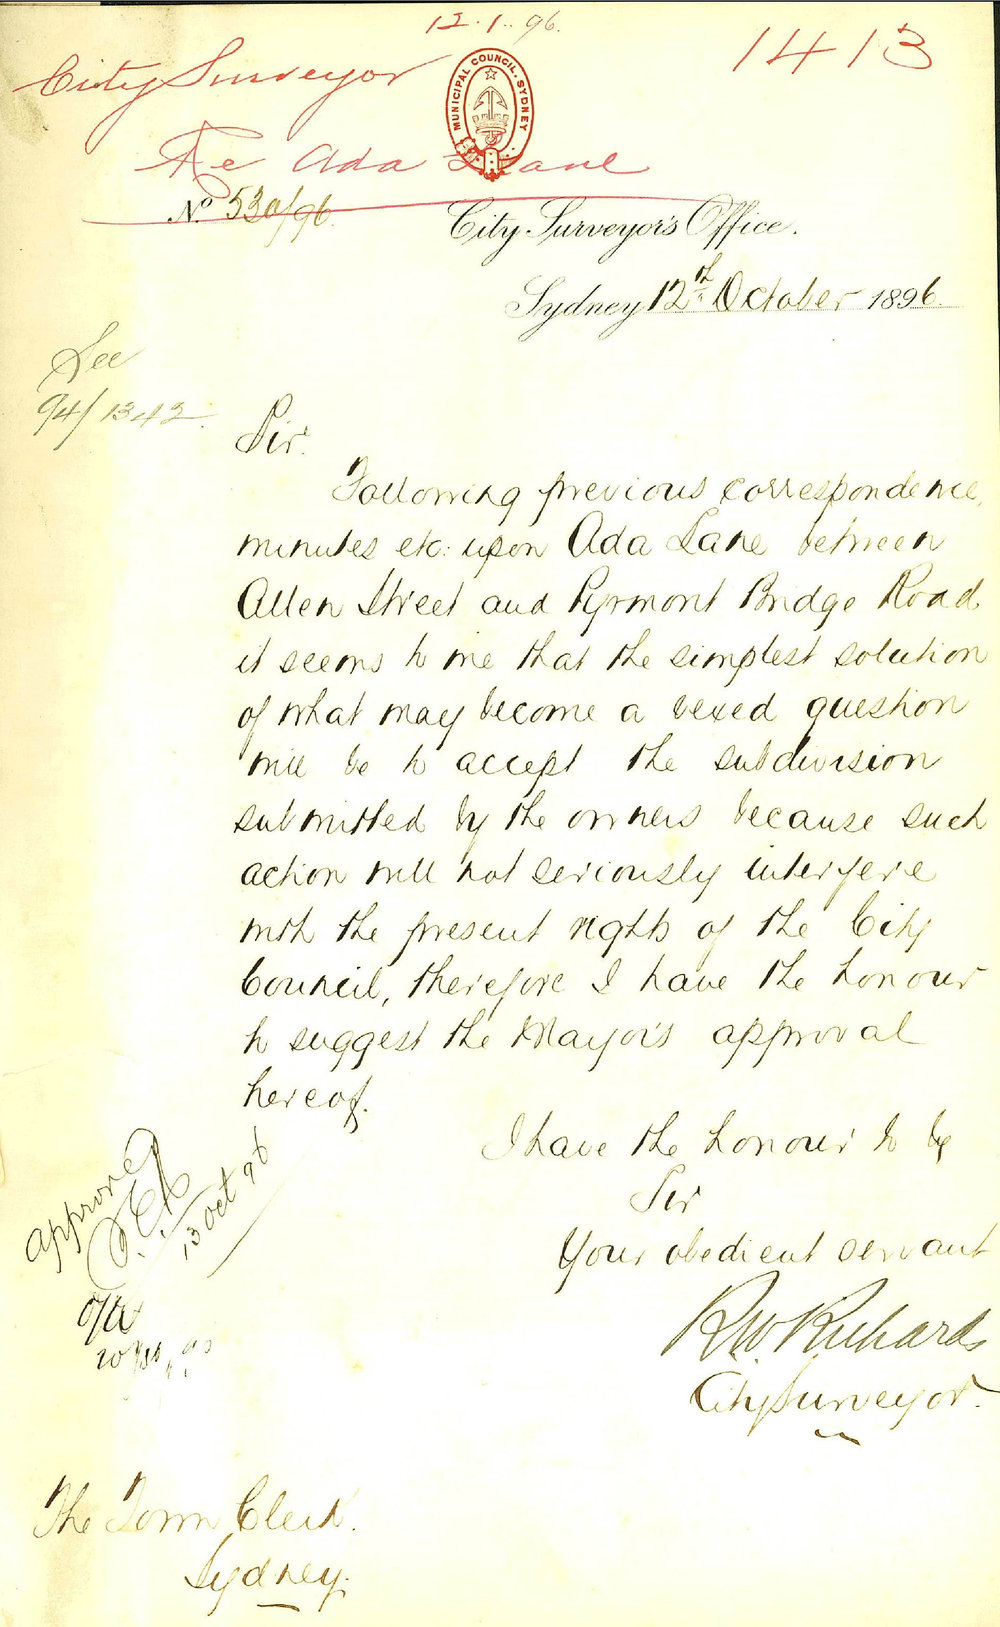 12.1.96.
1413
City Surveyor
MUNICIPAL COUNCIL. SYDNEY
Re Ada Lane
No 530/96.
City Surveyor's Office.
Sydney 12th October 1896.
See
94/1342.
Sir.
Following previous correspondence,
minutes etc: upon Ada Lane between
Allen Street and Pyrmont Bridge Road
it seems to me that the simplest solution
of what may become a vexed question
will be to accept the subdivision
submitted by the owners because such
action will not seriously interfere
with the present rights of the City
Council, therefore I have the honour
to suggest the Mayor's approval
hereof.
I have the honour to be
Sir
Your obedient servant
R W Richards
City Surveyor.
Approved
13 Oct 96
The Town Clerk.
Sydney.